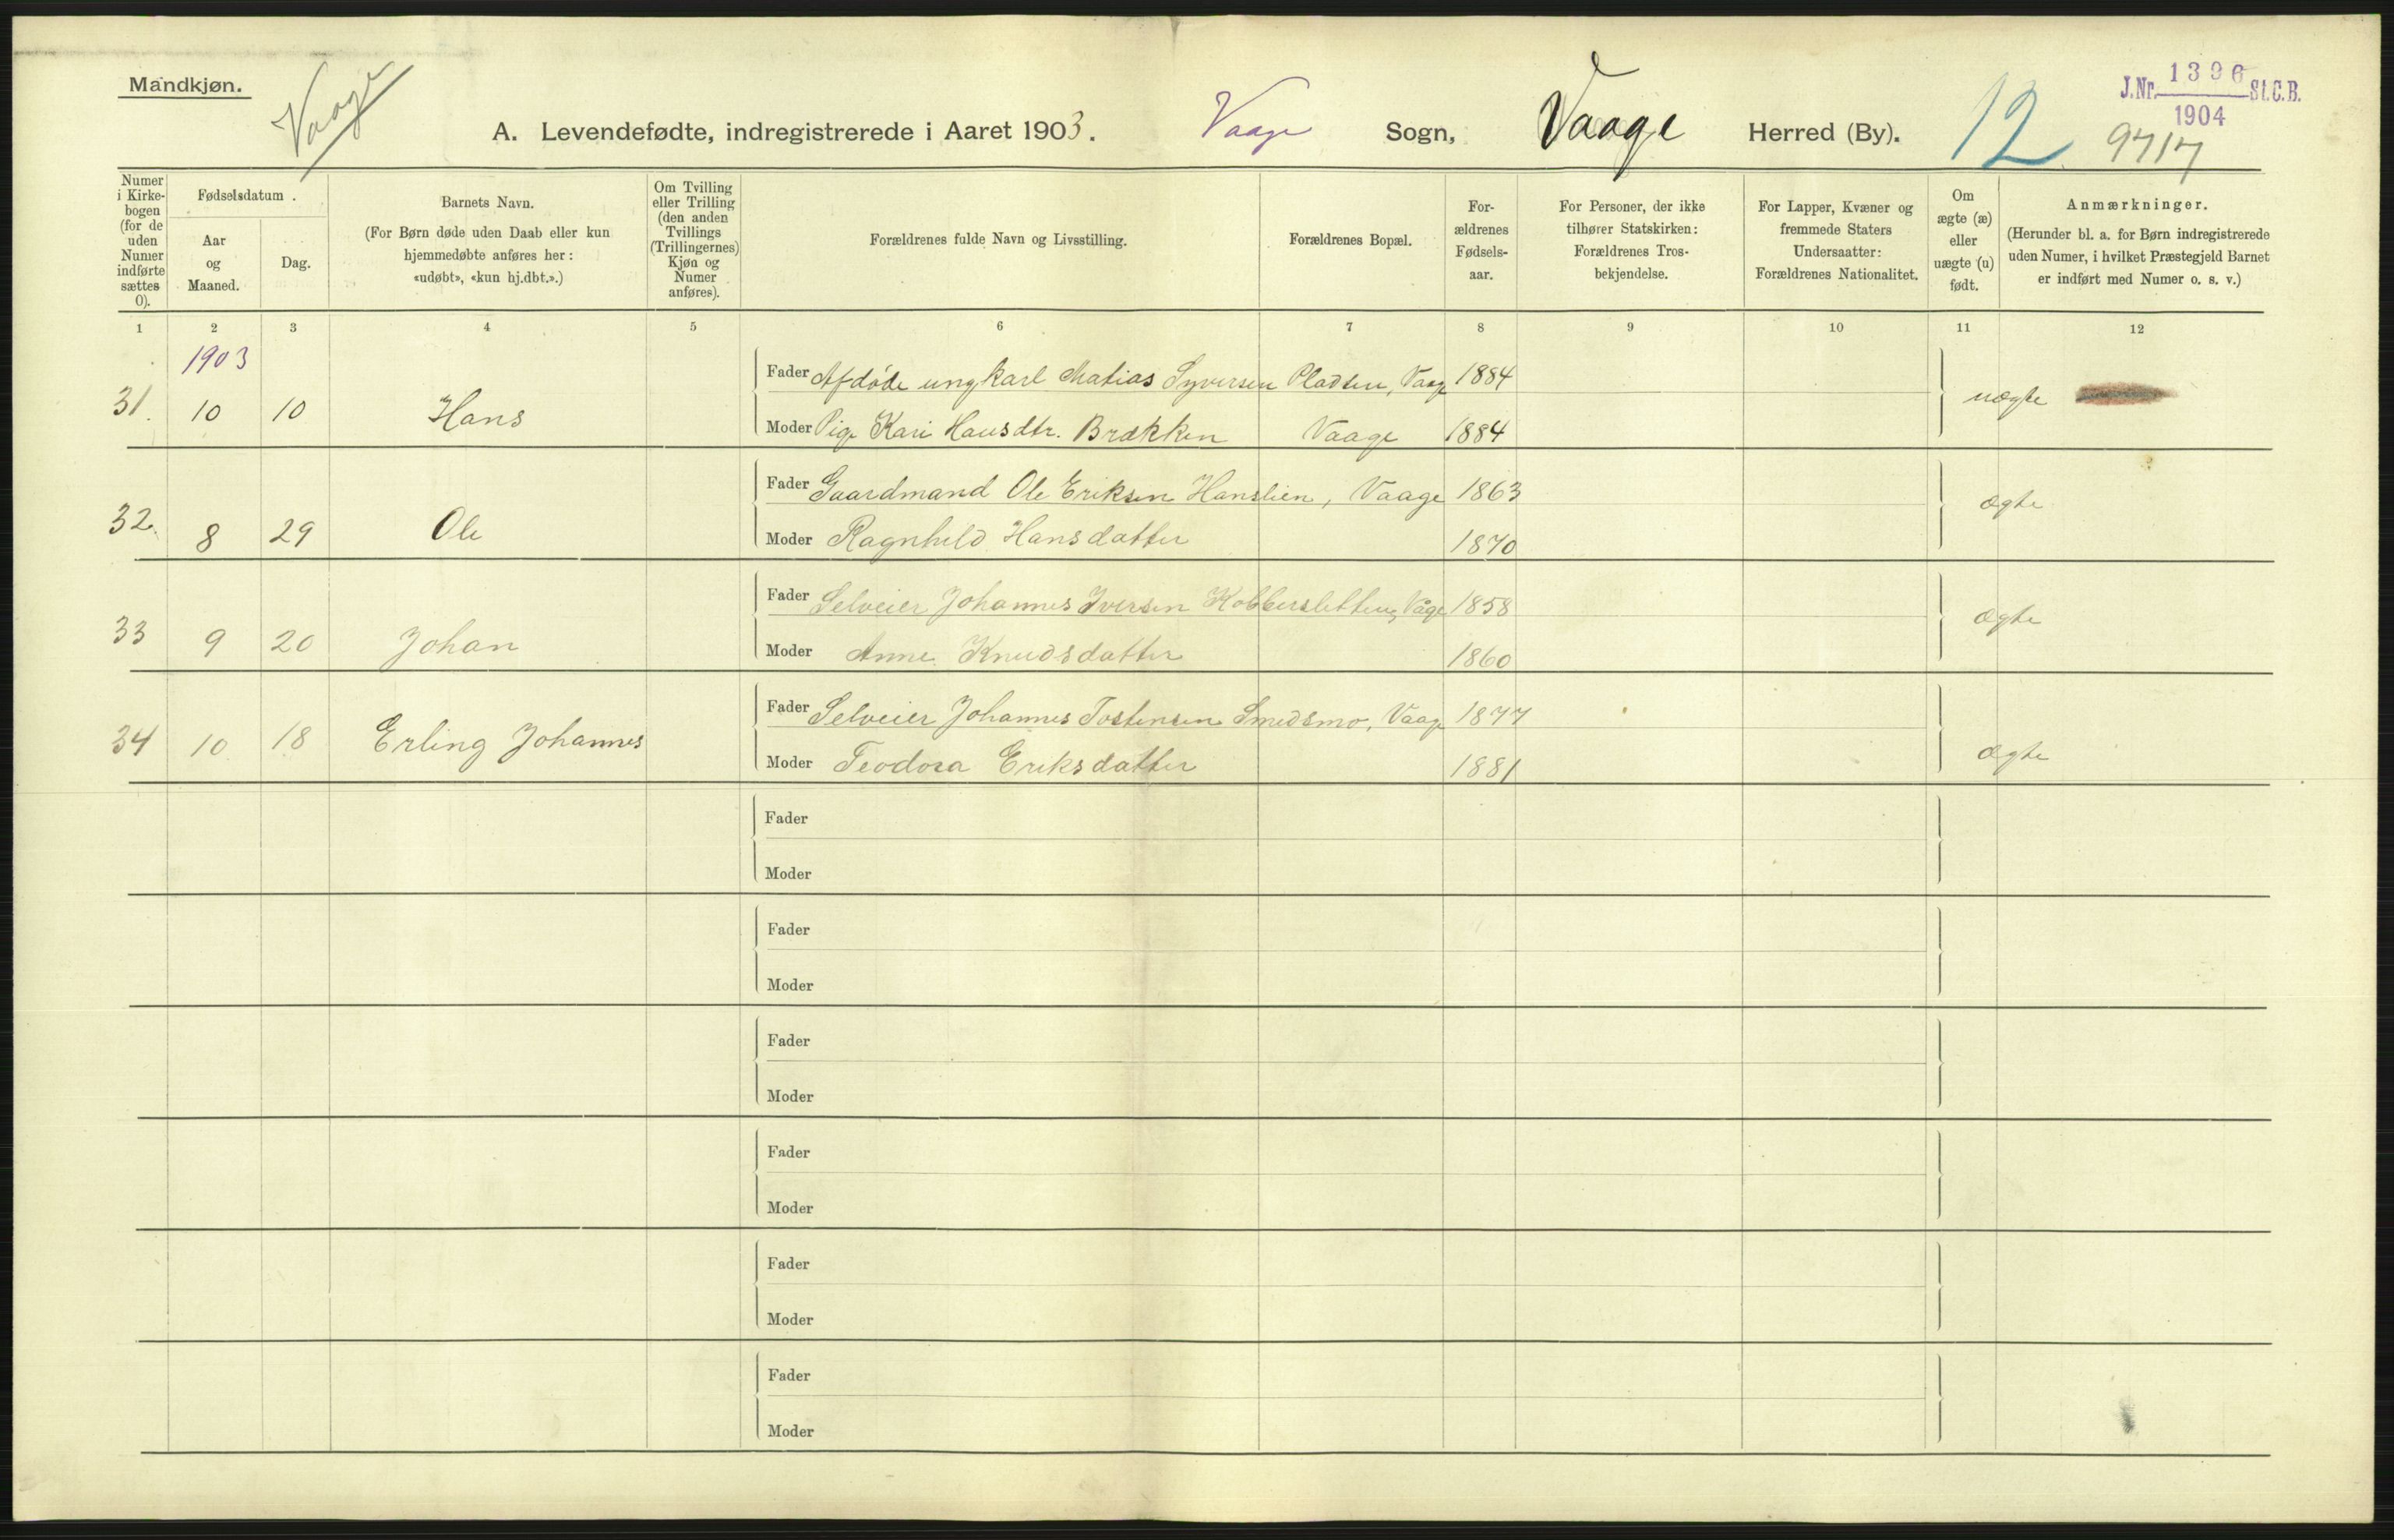 Mandkjøn.
Vaage
A. Levendefødte, indregistrerede i Aaret 1903. Vaage Sogn, Vaage Herred (By). 12
J.Nr. 1396 St.C.B.
1904
9717
Numer i Kirkebogen (for de uden Numer indførte sættes 0).
Fødselsdatum.
Aar og Maaned.
Dag.
Barnets Navn.
(For Børn døde uden Daab eller kun
hjemmedøbte anføres her:
«udøbt», «kun hj.dbt.».)
Om Tvilling
eller Trilling
(den anden
Tvillings
(Trillingernes)
Kjøn og
Numer
anføres).
Forældrenes fulde Navn og Livsstilling.
Forældrenes Bopæl.
For-
ældrenes
Fødsels-
aar.
For Personer, der ikke
tilhører Statskirken:
Forældrenes Tros-
bekjendelse.
For Lapper, Kvæner og
fremmede Staters
Undersaatter:
Forældrenes Nationalitet.
Om
ægte (æ)
eller
uægte (u)
født.
Anmærkninger.
(Herunder bl. a. for Børn indregistrerede
uden Numer, i hvilket Præstegjeld Barnet
er indført med Numer o. s. v.)
1 2 3 4 5 6 7 8 9 10 11 12
1903
Fader Afdøde ungkarl Matias Syversen Pladsen, Vaage 1884
31. 10 10 Hans uægte
Moder Pige Kari Hansdtr. Brækken Vaage 1884
Fader Gaardmand Ole Eriksen Hanslien, Vaage 1863
32. 8 29 Ole ægte
Moder Ragnhild Hansdatter 1870
Fader Selveier Johannes Iversen Kobbersletten, Våge 1858
33 9 20 Johan ægte
Moder Anne Knudsdatter 1860
Fader Selveier Johannes Tostensen Smedsmo, Vaage 1877
34 10 18 Erling Johannes ægte
Moder Teodora Eriksdatter 1881
Fader
Moder
Fader
Moder
Fader
Moder
Fader
Moder
Fader
Moder
Fader
Moder